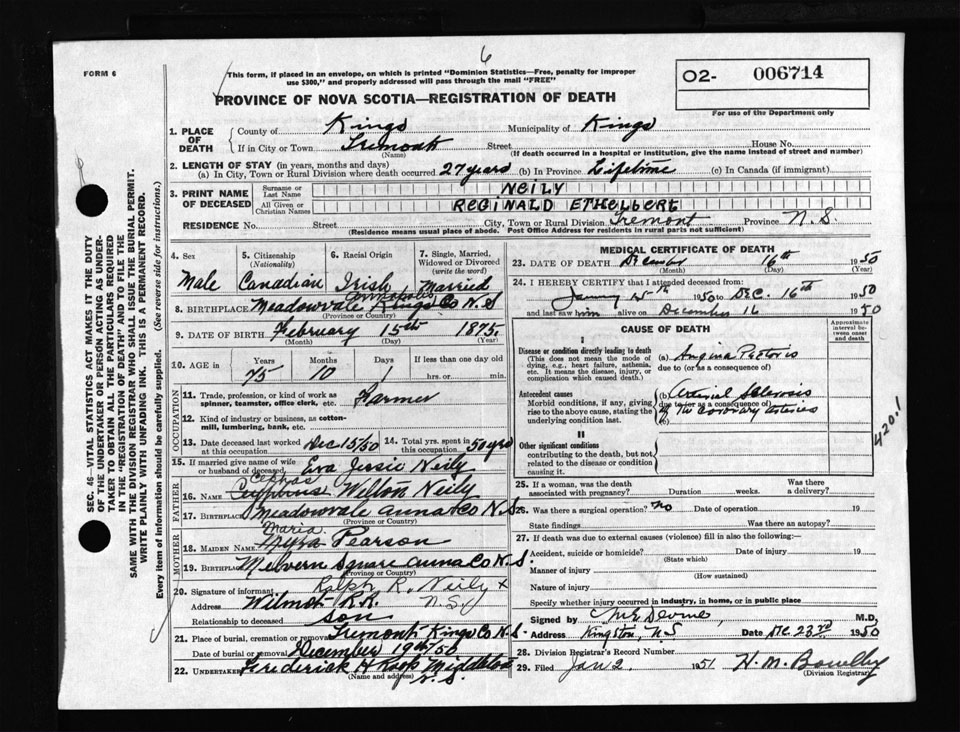 6
FORM 6
This form, if placed in an envelope, on which is printed "Dominion Statistics—Free, penalty for improper
use $300," and properly addressed will pass through the mail "FREE"
O2- 006714
For use of the Department only
PROVINCE OF NOVA SCOTIA—REGISTRATION OF DEATH
1. PLACE OF DEATH { County of Kings Municipality of Kings
If in City or Town Tremont Street House No.
(Name) (If death occurred in a hospital or institution, give the name instead of street and number)
2. LENGTH OF STAY (in years, months and days)
(a) In City, Town or Rural Division where death occurred 27 years (b) In Province Lifetime (c) In Canada (if immigrant)
3. PRINT NAME OF DECEASED { Surname or Last Name NEILY
All Given or Christian Names REGINALD ETHELBERT
RESIDENCE No. Street City, Town or Rural Division Tremont Province N.S.
(Residence means usual place of abode. Post Office Address for residents in rural parts not sufficient)
4. Sex 5. Citizenship (Nationality) 6. Racial Origin 7. Single, Married, Widowed or Divorced (write the word)
Male Canadian Irish Married
Annapolis
8. BIRTHPLACE Meadowvale Kings Co N.S
(Province or Country)
9. DATE OF BIRTH February 15th 1875
(Month) (Day) (Year)
10. AGE in Years Months Days If less than one day old
75 10 1 hrs. or min.
OCCUPATION
11. Trade, profession, or kind of work as spinner, teamster, office clerk, etc. Farmer
12. Kind of industry or business, as cotton-mill, lumbering, bank, etc.
13. Date deceased last worked at this occupation Dec 15/50 14. Total yrs. spent in this occupation 50 yrs
15. If married give name of wife or husband of deceased Eva Jessie Neily
FATHER
Cephas
16. Name Welton Neily
17. Birthplace Meadowvale Anna Co N.S.
(Province or Country)
MOTHER
Maria
18. Maiden Name Pearson
19. Birthplace Melvern Square Anna Co N.S.
(Province or Country)
20. Signature of informant Ralph R. Neily x
Address Wilmot R.R. N.S.
Relationship to deceased son
21. Place of burial, cremation or removal Tremont Kings Co N.S.
Date of burial or removal December 19th/50
22. Undertaker Frederick H Roop Middleton
(Name and address) N.S.
MEDICAL CERTIFICATE OF DEATH
23. DATE OF DEATH December 16th 1950
(Month) (Day) (Year)
24. I HEREBY CERTIFY that I attended deceased from:
1950 to Dec. 16th 1950
and last saw him alive on December 16 1950
CAUSE OF DEATH
Approximate interval between onset and death
I
Disease or condition directly leading to death (a) Angina Pectoris
(This does not mean the mode of dying, e.g., heart failure, asthenia, etc. It means the disease, injury, or complication which caused death.) due to (or as a consequence of)
Antecedent causes (b) Arterial Sclerosis
Morbid conditions, if any, giving rise to the above cause, stating the underlying condition last. due to (or as a consequence of)
of the coronary arteries
(c)
420.1
II
Other significant conditions
contributing to the death, but not related to the disease or condition causing it.
25. If a woman, was the death associated with pregnancy? Duration weeks. Was there a delivery?
26. Was there a surgical operation? no Date of operation 19
State findings Was there an autopsy?
27. If death was due to external causes (violence) fill in also the following:—
Accident, suicide or homicide? Date of injury 19
(State which)
Manner of injury
(How sustained)
Nature of injury
Specify whether injury occurred in industry, in home, or in public place
Signed by M.D.
Address Kingston, N.S Date Dec. 23rd 1950
28. Division Registrar's Record Number
29. Filed Jan 2 1951 H. M. Bowlby
(Division Registrar)
SEC. 46—VITAL STATISTICS ACT MAKES IT THE DUTY
OF THE UNDERTAKER OR PERSON ACTING AS UNDER-
TAKER TO OBTAIN ALL THE PARTICULARS REQUIRED
IN THE "REGISTRATION OF DEATH" AND TO FILE THE
SAME WITH THE DIVISION REGISTRAR WHO SHALL ISSUE THE BURIAL PERMIT.
WRITE PLAINLY WITH UNFADING INK. THIS IS A PERMANENT RECORD.
Every item of information should be carefully supplied. (See reverse side for instructions.)